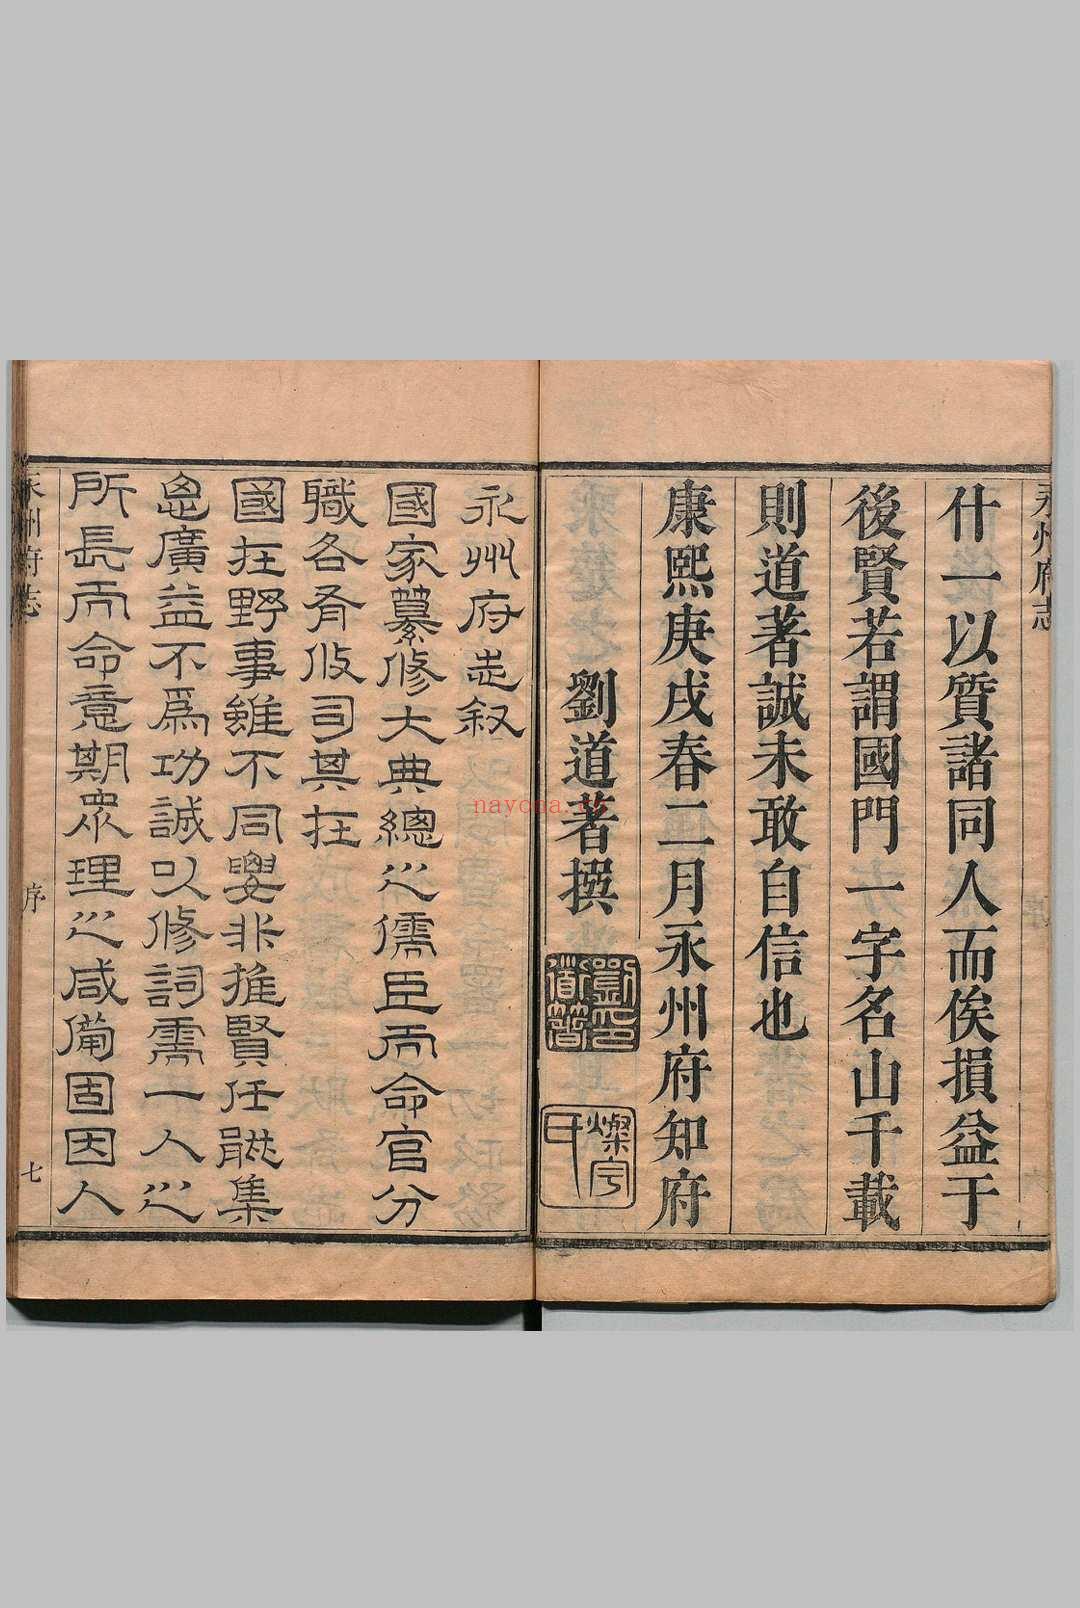 永州府志
什一以質諸同人而俟損益于
後賢若謂國門一字名山千載
則道著誠未敢自信也
康熙庚戌春二月永州府知府
劉道著撰
劉印道著
燦宇氏
永州府志叙
國家纂修大典總之儒臣而命官分
職各有攸司其在
國在野事雖不同要非推賢任能集
思廣益不爲功誠以修詞需一人之
所長而命意期眾理之咸備固因人
永州府志
序
七
nayona.cn